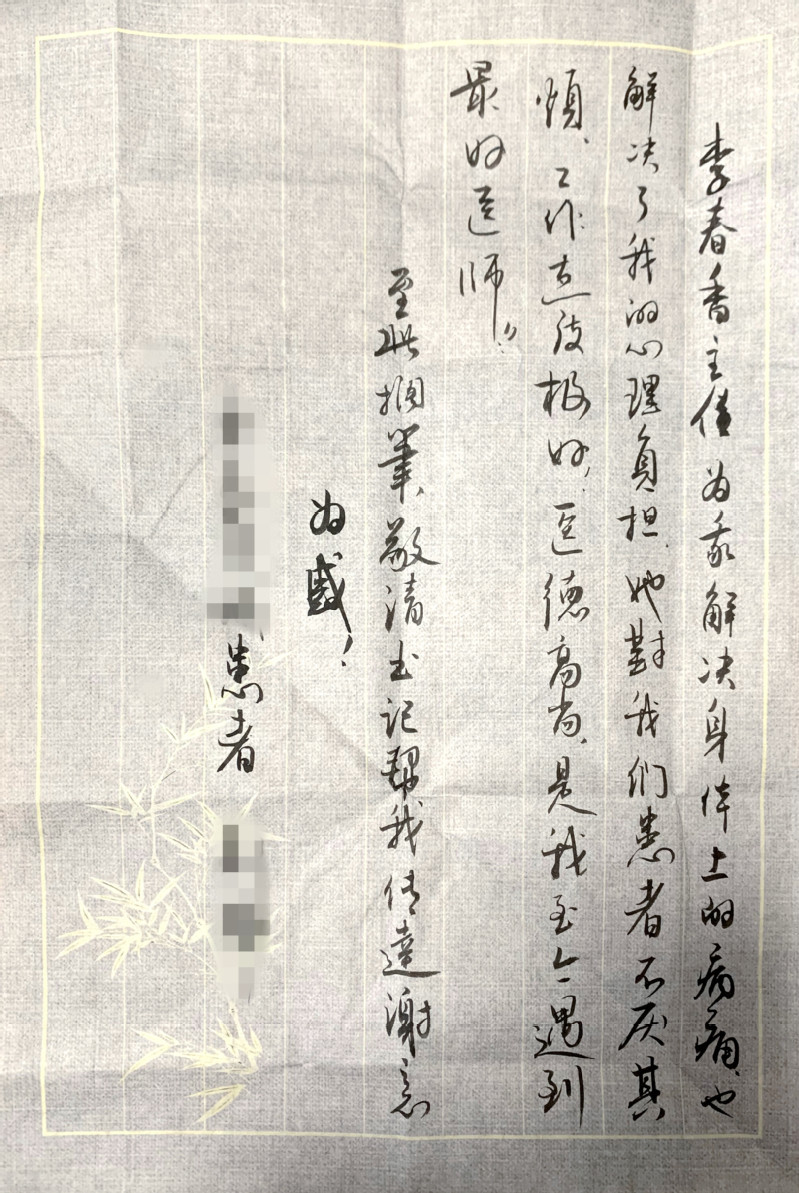 李春香主任为我解决身体上的病痛、也
解决了我的心理负担、她對我们患者不厌其
烦、工作态度极好，医德高尚、是我至今遇到
最好医师!!
至此搁筆、敬请书记帮我传達謝意
为感！
患者